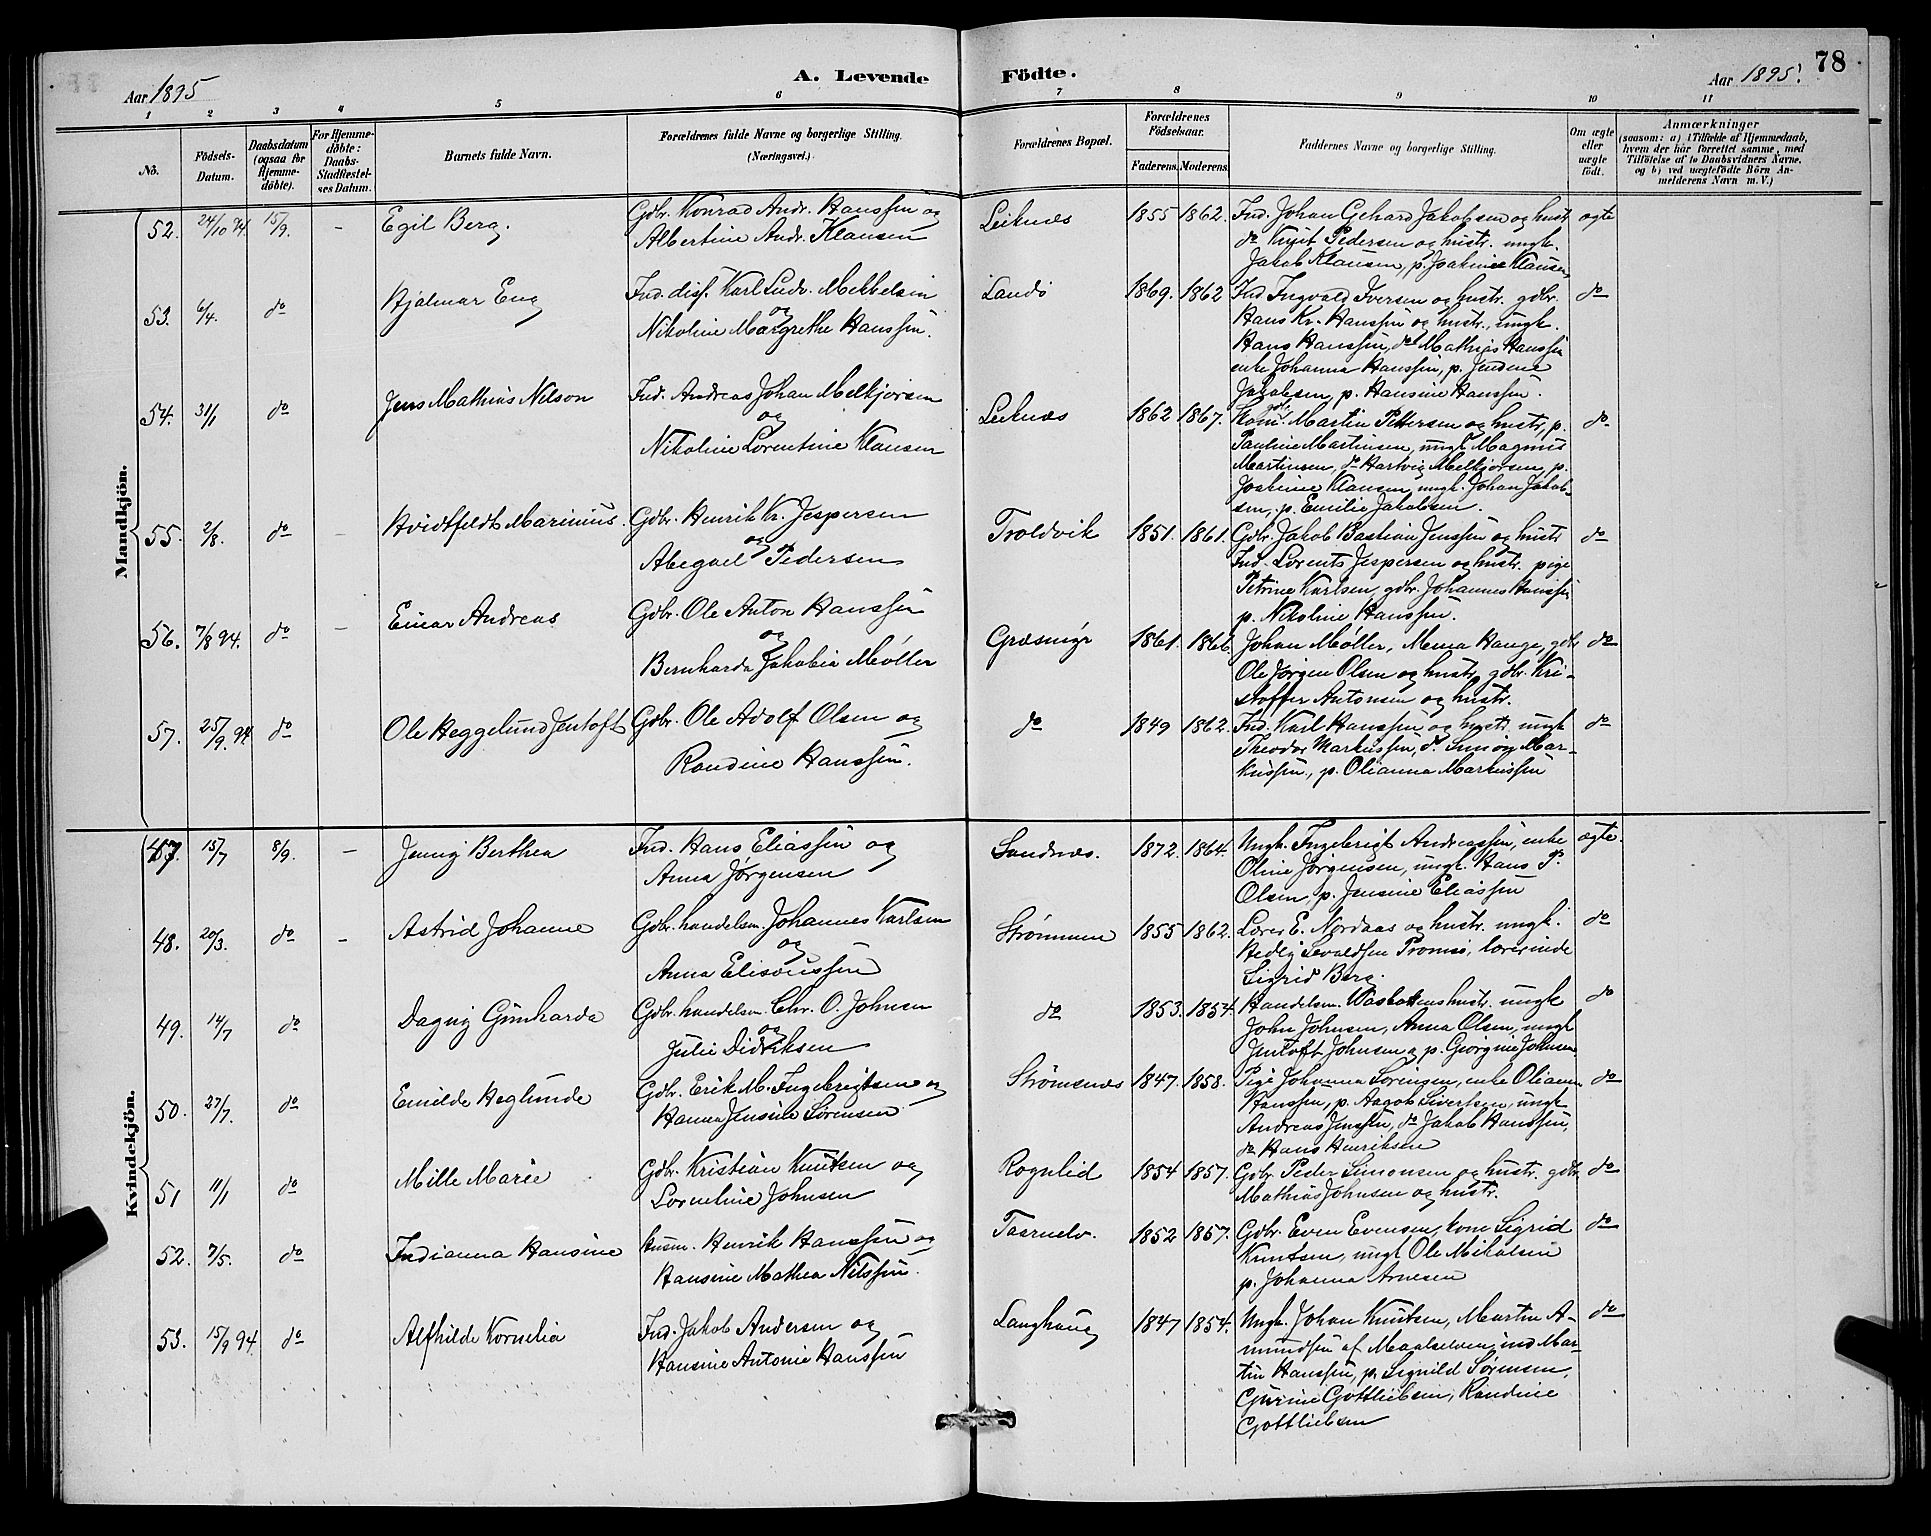 78
Aar 1895
A. Levende Födte.
Aar 1895.
1 2 3 4 5 6 7 8 9 10 11
No.
Födsels-Datum.
Daabsdatum (ogsaa for Hjemme-döbte).
For Hjemme-döbte: Daabs-Stadfæstel-ses Datum.
Barnets fulde Navn.
Forældrenes fulde Navne og borgerlige Stilling.
(Næringsvei.)
Forældrenes Bopæl.
Forældrenes Födselsaar.
Faderens. Moderens.
Faddernes Navne og borgerlige Stilling.
Om ægte eller uægte födt.
Anmærkninger
(saasom: a) i Tilfælde af Hjemmedaab,
hvem der har forrettet samme, med
Tilföielse af to Daabsvidners Navne.
og b) ved uægtefödte Börn An-
melderens Navn m. V.)
Mandkjön.
52. 24/10 94. 15/9. - Egil Berg. Gdbr. Konrad Andr. Hanssen og
Albertine Andr. Klausen
Leiknæs 1855 1862. Ind. Johan Gehard Jakobsen og hustr. ægte
do Knut Pedersen og hustr. ungk.
Jakob Klausen, p. Joakine Klausen
53. 6/4. do Hjalmar Eng Ind. disp. Karl Ludv. Mekkelsen
og
Nikoline Margrethe Hanssen.
Sandö 1869. 1862 Ind. Ingvald Iversen og hustr. gdbr. do
Hans Kr. Hanssen og hustr., ungk.
Hans Hanssen, do Mathias Hanssen
enke Johanna Hanssen, p. Jensine
Jakobsen, p. Hansine Hanssen.
54. 31/1 do Jens Mathias Nilson Ind. Andreas Johan Melkjorsen
og
Nikoline Lorentine Klausen
Leiknæs 1862 1867. Martin Pettersen og hustr., p. do
Pauline Martinsen, ungk. Magnus
Martinsen, do Hartvig Melkjorsen, p.
Joakine Klausen, ungk. Johan Jakob-
sen, p. Emilie Jakobsen.
55. 2/8. do Hvidtfeldt Marinius. Gdbr. Henrik Kr. Jespersen
og
Abegael Pedersen
Troldvik 1851. 1861. Gdbr. Jakob Bastian Jenssen og hustr. do
Ind. Lorents Jespersen og hustr. pige
Petrine Karlsen, gdbr. Johannes Hanssen
p. Nikoline Hanssen.
56. 7/8 94. do - Einar Andreas Gdbr. Ole Anton Hanssen
og
Bernharda Jakobia Møller
Græsmyr 1861. 1866. Johan Møller, Mema Hauge, gdbr. do
Ole Jørgen Olsen og hustr. gdbr. Kri-
stoffer Antonsen og hustr.
57. 25/9. 94 do Ole Heggelund Jentoft Gdbr. Ole Adolf Olsen og
Randine Hanssen.
do 1849 1862. Ind. Karl Hanssen og hustr. ungk. do
Theodor Markussen, do Simon Mar-
kussen, p. Olianna Markussen
Kvindekjön.
47. 15/7 8/9. - Jenny Berthea Ind. Hans Eliassen og
Anna Jørgensen
Sandnæs. 1872. 1864. Ungk. Ingebrigt Andreassen, enke ægte.
Oline Jørgensen, ungk. Hans P.
Olsen, p. Jensine Eliassen
48. 20/3. do - Astrid Johanne Gdbr. handelsm. Johannes Karlsen
og
Anna Elisæussen
Strømmen 1855 1862. Lærer E. Nordaas og hustr. ungk. do
Hedley Sevaldsen Tromsö, lærerinde
Sigrid Berg.
49. 14/7 do Dagny Gunharda Gdbr. handelsm. Chr. O. Johnsen
og
Julie Didriksen
do 1853. 1854. Handelsm. hustr. ungk. do
John Johnsen, Anna Olsen, ungk.
Jentoft Johnsen og p. Georgine Johnsen
50. 27/7. do Emilde Heglunde Gdbr. Erik M. Ingebrigtsen og
Hanna Jensine Sörensen
Strømsnæs 1847. 1858. Pige Johanna Sörensen, enke Olianna do
Hanssen, p. Aagot Sivertsen, ungk.
Andreas Jenssen, do Jakob Hanssen,
do Hans Henriksen
51 11/1 do Mille Marie Gdbr. Kristian Knutsen og
Lorneline Johnsen
Rognlid 1854 1857. Gdbr. Peder Simonsen og hustr. gdbr. do
Mathias Johnsen og hustr.
52. 7/5. do Indianna Hansine Husm. Henrik Hanssen og
Hansine Mathea Nilssen.
Taarnelv. 1852 1857. Gdbr. Even Evensen, kone Sigrid do
Knutsen, ungk. Ole Mikalsen
p. Johanna Arnesen
53. 15/9 94. do Alfhilde Kornelia Ind. Jakob Andersen og
Hansine Antonie Hanssen
Langhaug 1847 1854. Ungk. Johan Knutsen, Martin A- do
mundsen af Maalselven, ind. Mar-
tin Hanssen, p. Signild Sörensen,
Gurine Gottliebsen, Randine
Gottliebsen